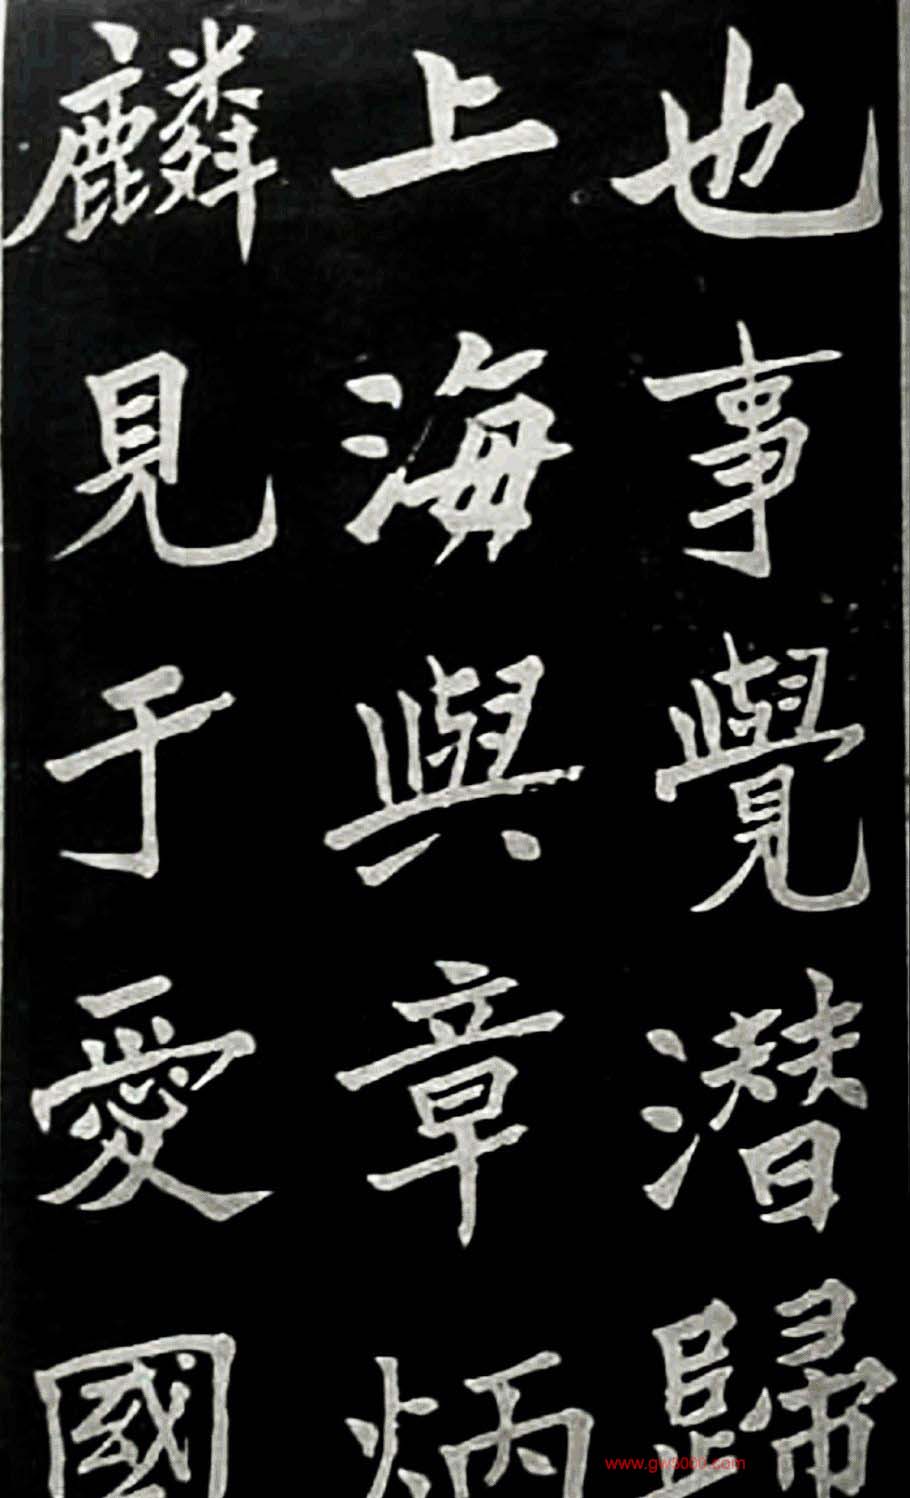 也事覺潛歸
上海與章炳
麟見于愛國
www.gw9000.com